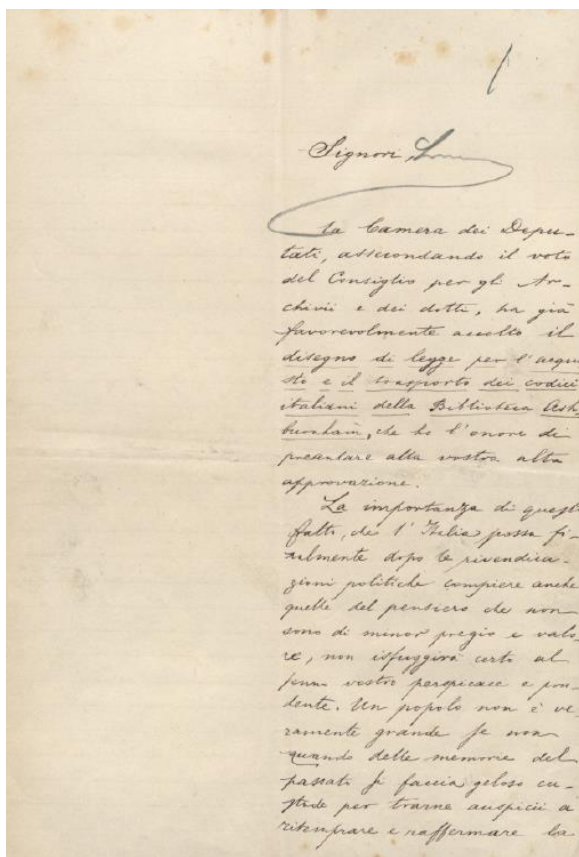 Signori,
La Camera dei Depu-
tati, assecondando il voto
del Consiglio per gli Ar-
chivii e dei dotti, ha già
favorevolmente accolto il
disegno di legge per l'acqui
sto e il trasporto dei codici
italiani della Biblioteca Ash
burnham, che ho l'onore di
presentare alla vostra alta
approvazione.
La importanza di questo
fatto, che l'Italia possa fi-
nalmente dopo le rivendica-
zioni politiche compiere anche
quelle del pensiero che non
sono di minor pregio e valo-
re, non isfuggirà certo al
senno vostro perspicace e pru-
dente. Un popolo non è ve
ramente grande se non
quando delle memorie del
passato si faccia geloso cu-
stode per trarne auspicii a
ritemprare e raffermare la